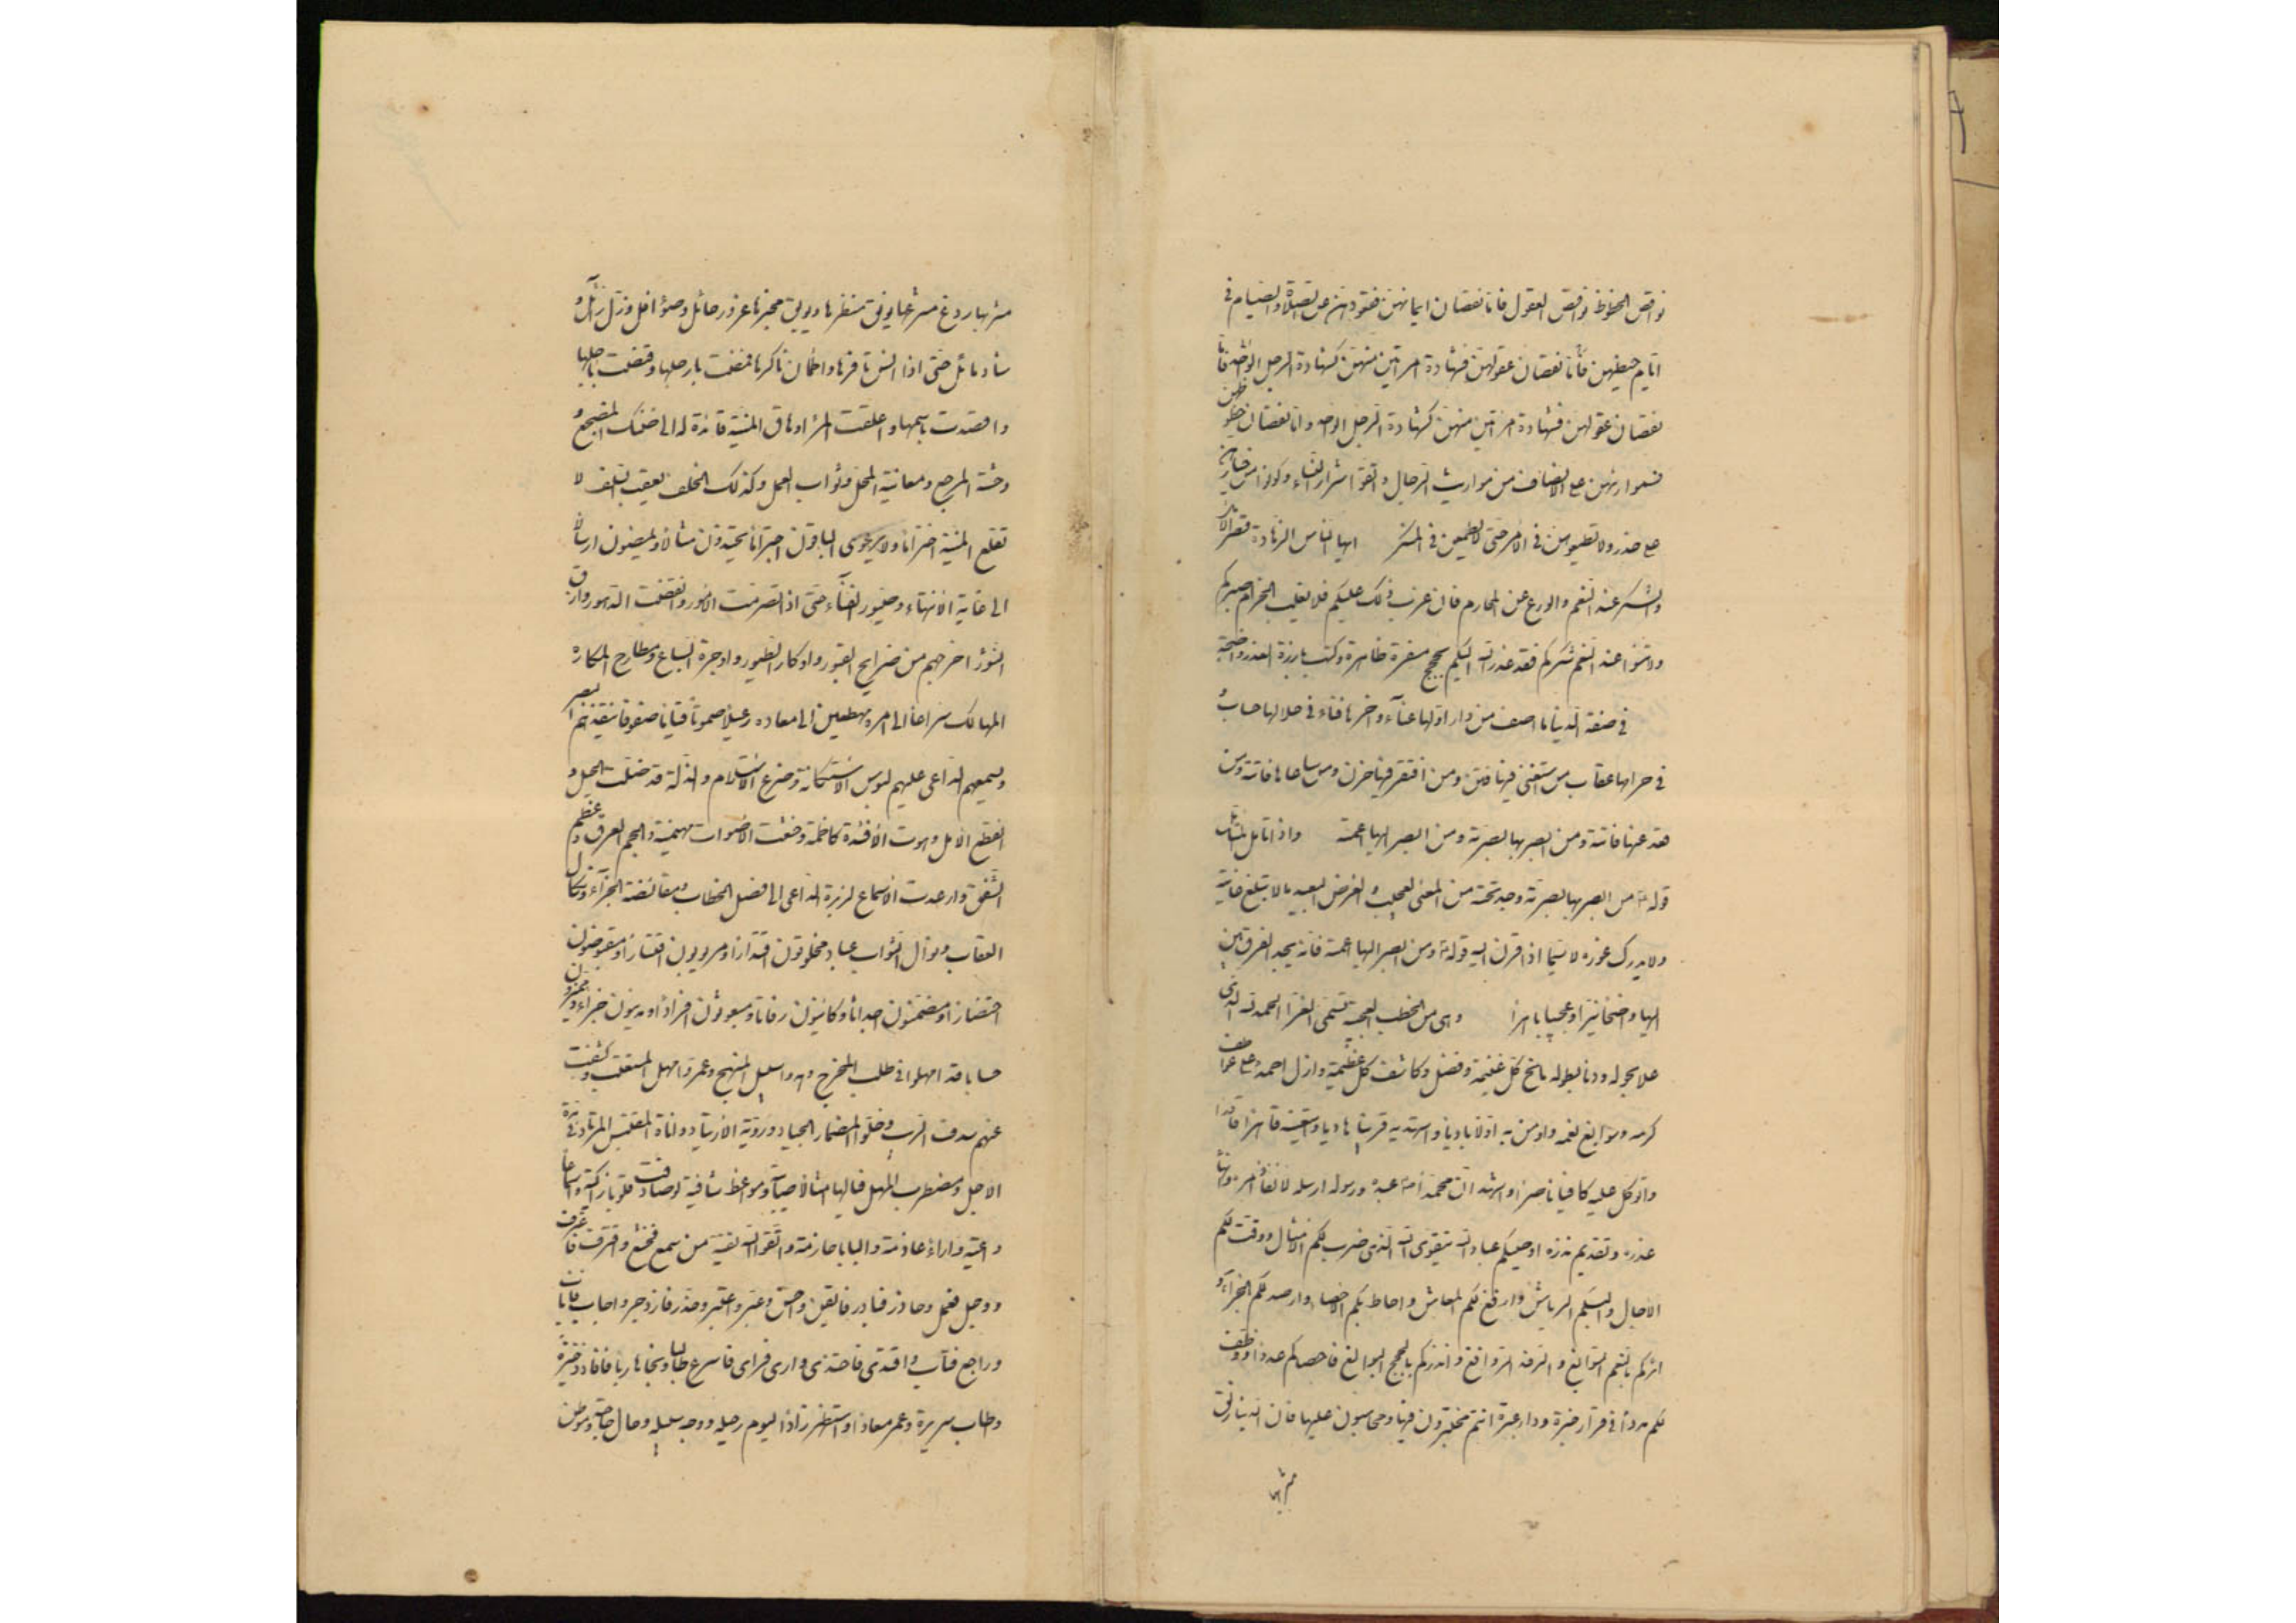 نواقص الحظوظ نواقص العقول فاما نقصان ايمانهن فقعودهن عن الصلاة والصيام في
ايام حيضهن واما نقصان عقولهن فشهادة امراتين منهن كشهادة الرجل الواحد واما
نقصان عقولهن فشهادة امراتين منهن كشهادة الرجل الواحد واما نقصان حظوظهن
فمواريثهن على الانصاف من مواريث الرجال فاتقوا شرار النساء وكونوا من خيارهن
على حذر ولا تطيعوهن في المعروف حتى لا يطمعن في المنكر ايها الناس الزهادة قصر الامل
والشكر عند النعم والورع عن المحارم فان عزب ذلك عليكم فلا يغلب الحرام صبركم
ولا تنسوا عند النعم شكركم فقد اعذر الله اليكم بحجج مسفرة ظاهرة وكتب بارزة العذر واضحة
في صفة الدنيا ما اصف من دار اولها عناء واخرها فناء في حلالها حساب و
في حرامها عقاب من استغنى فيها فتن ومن افتقر فيها حزن ومن ساعاها فاتته ومن
قعد عنها واتته ومن ابصر بها بصرته ومن ابصر اليها اعمته واذا تامل المتامل
قوله من ابصر بها بصرته وجد تحته من المعنى العجيب والغرض البعيد ما لا تبلغ غايته
ولا يدرك غوره لا سيما اذا قرن اليه قوله ومن ابصر اليها اعمته فانه يجد الفرق بين
ابصر بها وابصر اليها واضحا نيرا وعجيبا باهرا وهي من الخطب العجيبة تسمى الغراء الحمد لله الذي
علا بحوله ودنا بطوله مانح كل غنيمة وفضل وكاشف كل عظيمة وازل احمده على عواطف
كرمه وسوابغ نعمه واومن به اولا باديا واستهديه قريبا هاديا واستعينه قاهرا قادرا
واتوكل عليه كافيا ناصرا واشهد ان محمدا عبده ورسوله ارسله لانفاذ امره وانهاء
عذره وتقديم نذره اوصيكم عباد الله بتقوى الله الذي ضرب لكم الامثال ووقت لكم
الاجال والبسكم الرياش وارفغ لكم المعاش واحاط بكم الاحصاء وارصد لكم الجزاء و
اثركم بالنعم السوابغ والرفد الروافغ وانذركم بالحجج البوالغ فاحصاكم عددا ووظف
لكم مددا في قرار خبرة ودار عبرة انتم مختبرون فيها ومحاسبون عليها فان الدنيا رنق
مشربها
مشربها ردغ مشرعها يونق منظرها ويوبق مخبرها غرور حائل وضوء افل وظل زائل و
سناد مائل حتى اذا انس نافرها واطمأن ناكرها قمصت بارجلها وقنصت باحبلها
واقصدت باسهمها واعلقت المرء اوهاق المنية قائدة له الى ضنك المضجع و
وحشة المرجع ومعاينة المحل وثواب العمل وكذلك الخلف يعقب السلف لا
تقلع المنية اختراما ولا يرعوى الباقون اجتراما يحتذون مثالا ويمضون ارسالا
الى غاية الانتهاء وصيور الفناء حتى اذا تصرمت الامور وتقضت الدهور وازف
النشور اخرجهم من ضرايح القبور واوكار الطيور واوجرة السباع ومطارح المكاره
المهالك سراعا الى امره مهطعين الى معاده رعيلا صموتا قياما صفوفا ينفذهم البصر
ويسمعهم الداعي عليهم لبوس الاستكانة وضرع الاستسلام والذلة قد ضلت الحيل و
انقطع الامل وهوت الافئدة كاظمة وخشعت الاصوات مهينمة والجم العرق وعظم
الشفق وارعدت الاسماع لزبرة الداعي الى فصل الخطاب ومقايضة الجزاء ونكال
العقاب ونوال الثواب عباد مخلوقون اقتدارا ومربوبون اقتسارا ومقبوضون
احتضارا ومضمنون اجداثا وكائنون رفاتا ومبعوثون افرادا ومدينون جزاء ومميزون
حسابا قد امهلوا في طلب المخرج وهدوا سبيل المنهج وعمروا مهل المستعتب وكشفت
عنهم سدف الريب وخلوا لمضمار الجياد وروية الارتياد واناة المقتبس المرتاد في مدة
الاجل ومضطرب المهل فيا لها امثالا صائبة ومواعظ شافية لو صادفت قلوبا زاكية واسماعا
واعية واراء عازمة والبابا حازمة فاتقوا الله تقية من سمع فخشع واقترف فاعترف
ووجل فعمل وحاذر فبادر وايقن فاحسن وعبر فاعتبر وحذر فازدجر واجاب فاناب
وراجع فتاب واقتدى فاحتذى وارى فراى فاسرع طالبا ونجا هاربا فافاد ذخيرة
واطاب سريرة وعمر معادا واستظهر زادا ليوم رحيله ووجه سبيله وحال حاجته وموطن